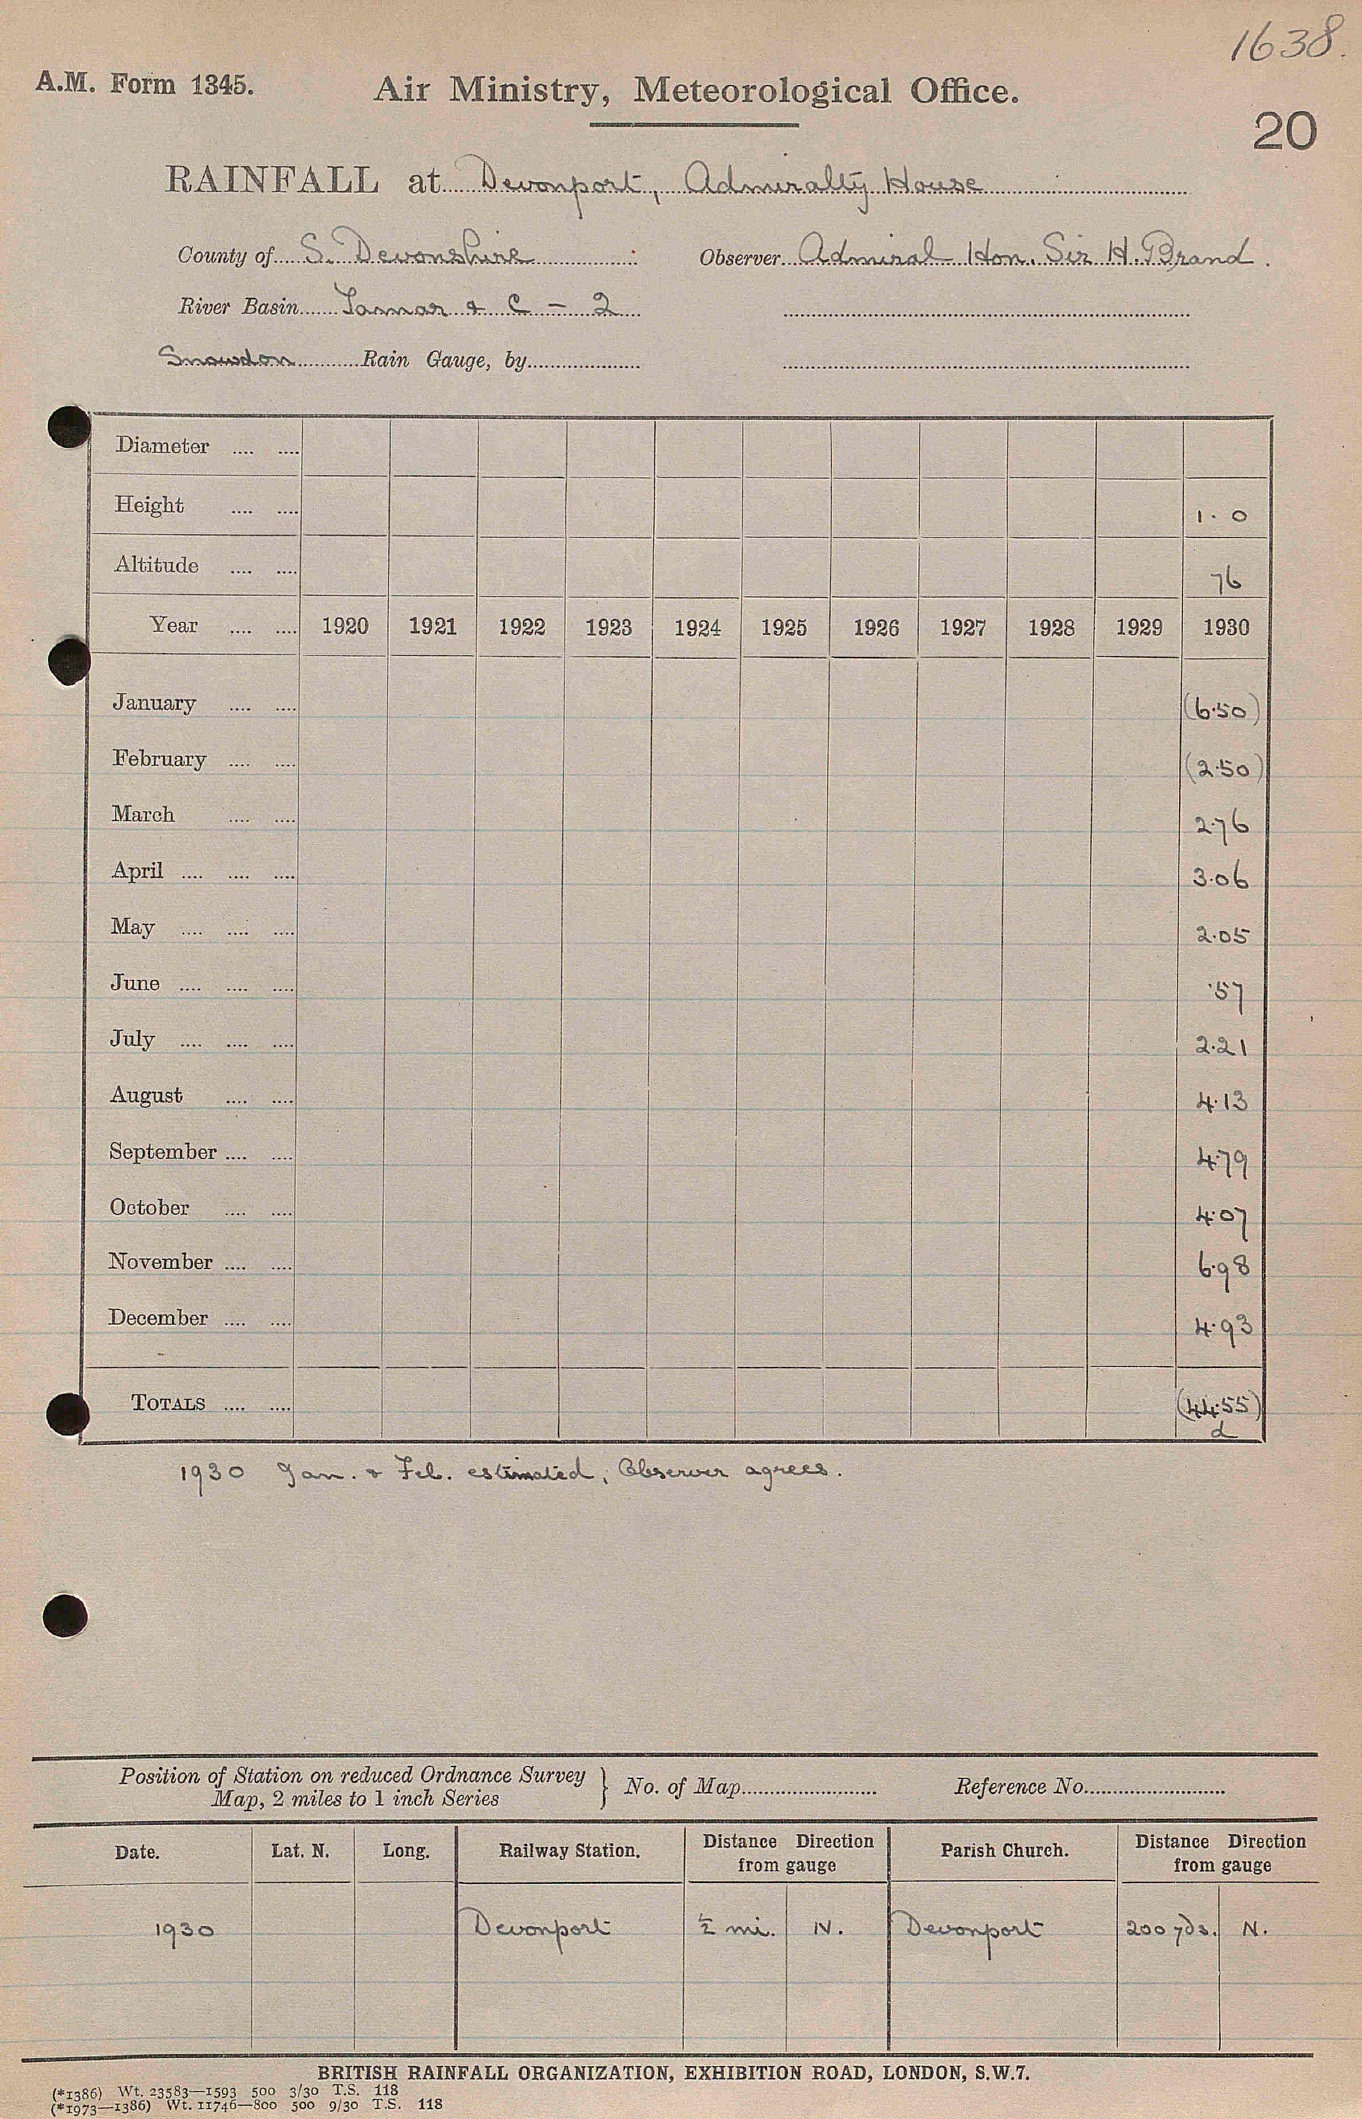 1638.
A.M. Form 1345. Air Ministry, Meteorological Office.
20
RAINFALL at Devonport, Admiralty House
County of S. Devonshire Observer Admiral Hon. Sir H. Brand.
River Basin Tamar & C - 2
Snowdon Rain Gauge, by
Diameter
Height 1.0
Altitude 76
Year 1920 1921 1922 1923 1924 1925 1926 1927 1928 1929 1930
January (6.50)
February (2.50)
March 2.76
April 3.06
May 2.05
June .57
July 2.21
August 4.13
September 4.79
October 4.07
November 6.98
December 4.93
TOTALS (44.55)
d
1930 Jan. & Feb. estimated, Observer agrees.
Position of Station on reduced Ordnance Survey Map, 2 miles to 1 inch Series } No. of Map Reference No.
Date. Lat. N. Long. Railway Station. Distance Direction from gauge Parish Church. Distance Direction from gauge
1930 Devonport ½ mi. N. Devonport 200 yds. N.
BRITISH RAINFALL ORGANIZATION, EXHIBITION ROAD, LONDON, S.W.7.
(*1386) Wt. 23583—1593 500 3/30 T.S. 118
(*1973—1386) Wt. 11746—800 500 9/30 T.S. 118